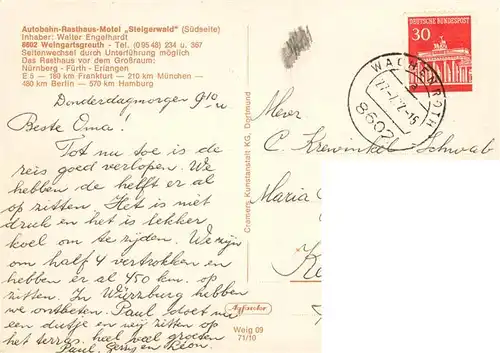 Autobahn-Rasthaus-Motel „Steigerwald" (Südseite)
Inhaber: Walter Engelhardt
8602 Weingartsgreuth - Tel. (09548) 234 u. 367
Seitenwechsel durch Unterführung möglich
Das Rasthaus vor dem Großraum:
Nürnberg - Fürth - Erlangen
E 5 — 180 km Frankfurt — 210 km München —
480 km Berlin — 570 km Hamburg
Donderdagmorgen 9 10 u
Beste Oma!
Tot nu toe is de
reis goed verlopen. We
hebben de helft er al
op zitten. Het is niet
druk en het is lekker
koel om te rijden. We zijn
om half 4 vertrokken en
hebben er al 450 km. op
zitten. In Würzburg hebben
we ontbeten. Paul doet nu
een dutje en wij zitten op
het terras. heel veel groeten
Paul, Gerry en Léon.
Cramers Kunstanstalt KG, Dortmund
Weig 09
71/10
DEUTSCHE BUNDESPOST
30
WACHENROTH
8602
Mevr.
C. Krewinkel-Schwab
Maria